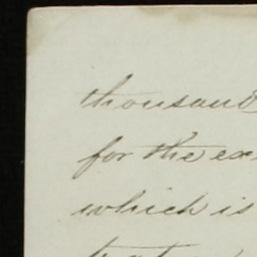 thousand
for the ex
which is